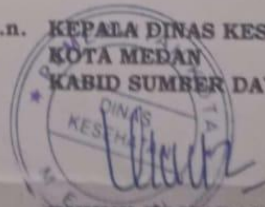 a.n. KEPALA DINAS KES
KOTA MEDAN
KABID SUMBER DA
DINAS
KESEHA